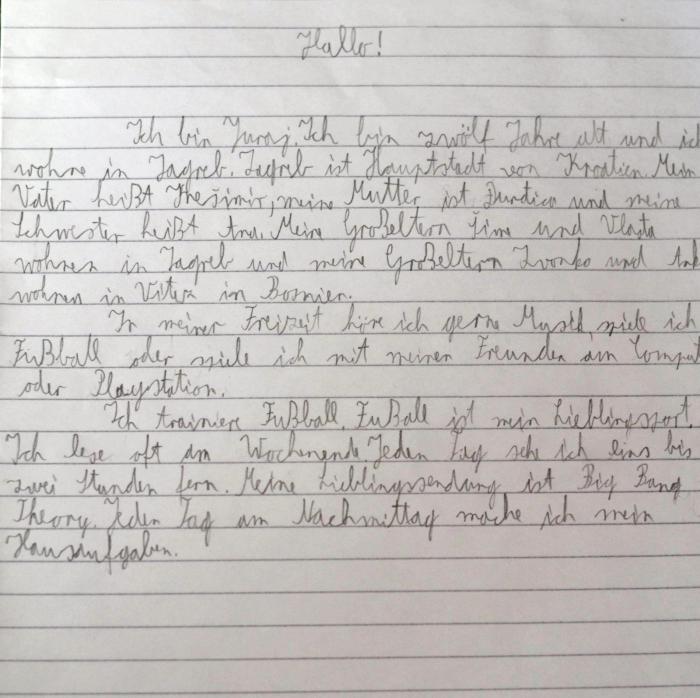 Hallo!
Ich bin Juraj. Ich bin zwölf Jahre alt und ich
wohne in Zagreb. Zagreb ist Hauptstadt von Kroatien. Mein
Vater heißt Krešimir, meine Mutter ist Đurdica und meine
Schwester heißt Ana. Meine Großeltern Šime und Vlasta
wohnen in Zagreb und meine Großeltern Zvonko und
wohnen in Vitez in Bosnien.
In meiner Freizeit höre ich gerne Musik, spiele ich
Fußball oder spiele ich mit meinen Freunden am
oder Playstation.
Ich trainiere Fußball. Fußall ist mein Lieblingssport.
Ich lese oft am Wochenende. Jeden Tag sehe ich eins bis
zwei Stunden fern. Meine Lieblingssendung ist Big Bang
Theory. Jeden Tag am Nachmittag mache ich mein
Hausaufgaben.